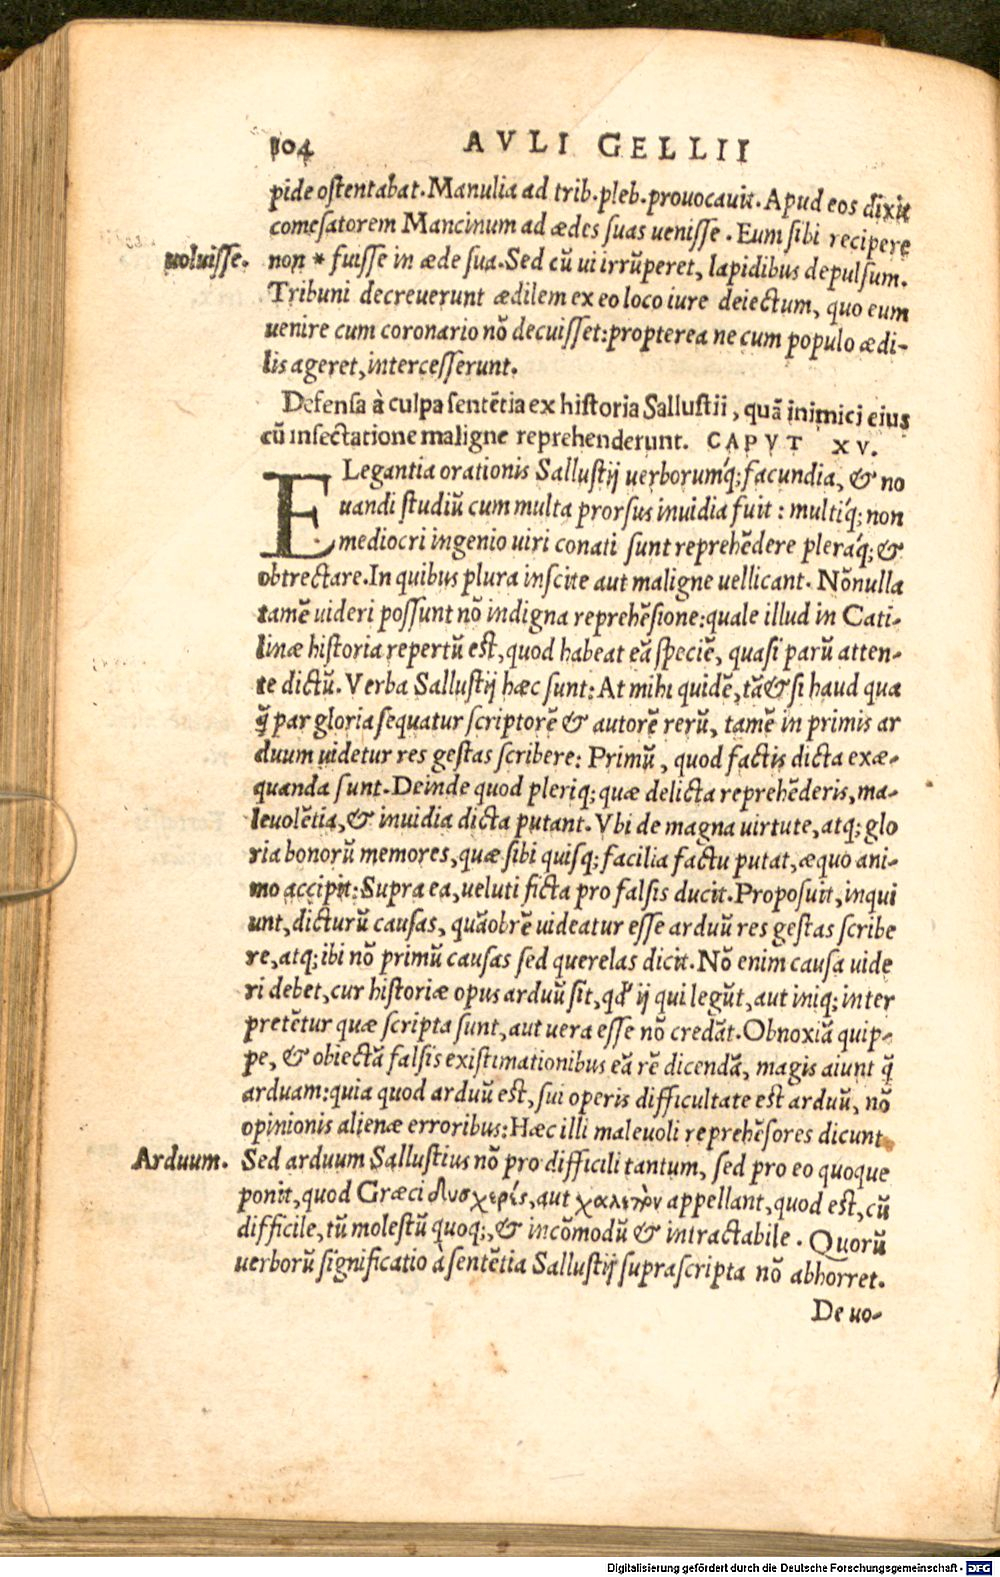 104 AVLI GELLII
pide ostentabat. Manulia ad trib. pleb. provocavit. Apud eos dixit
comesatorem Mancinum ad ædes suas uenisse. Eum sibi recipere
uoluisse. non * fuisse in æde sua. Sed cũ ui irrũperet, lapidibus depulsum.
Tribuni decreuerunt ædilem ex eo loco iure deiectum, quo eum
uenire cum coronario nõ decuisset: propterea ne cum populo ædi-
lis ageret, intercesserunt.
Defensa à culpa sentẽtia ex historia Sallustii, quã inimici eius
cũ insectatione maligne reprehenderunt. CAPVT XV.
ELegantia orationis Sallustij uerborumq́; facundia, & no
uandi studiũ cum multa prorsus inuidia fuit: multiq́; non
mediocri ingenio uiri conati sunt reprehẽdere pleraq́; &
obtrectare. In quibus plura inscite aut maligne uellicant. Nõnulla
tamẽ uideri possunt nõ indigna reprehẽsione: quale illud in Cati-
linæ historia repertũ est, quod habeat eã speciẽ, quasi parũ atten-
te dictũ. Verba Sallustij hæc sunt: At mihi quidẽ, tã & si haud qua
q̃ par gloria sequatur scriptorẽ & autorẽ rerũ, tamẽ in primis ar
duum uidetur res gestas scribere: Primũ, quod factis dicta exæ-
quanda sunt. Deinde quod pleriq; quæ delicta reprehẽderis, ma-
leuolẽtia, & inuidia dicta putant. Vbi de magna uirtute, atq; glo
ria bonorũ memores, quæ sibi quisq; facilia factu putat, æquo ani-
mo accipit: Supra ea, ueluti ficta pro falsis ducit. Proposuit, inqui
unt, dicturũ causas, quãobrẽ uideatur esse arduũ res gestas scribe
re, atq; ibi nõ primũ causas sed querelas dicit. Nõ enim causa uide
ri debet, cur historiæ opus arduũ sit, qđ ij qui legũt, aut iniq; inter
pretẽtur quæ scripta sunt, aut uera esse nõ credãt. Obnoxiã quip-
pe, & obiectã falsis existimationibus eã rẽ dicendã, magis aiunt q̃
arduam: quia quod arduũ est, sui operis difficultate est arduũ, nõ
opinionis alienæ erroribus: Hæc illi maleuoli reprehẽsores dicunt
Arduum. Sed arduum Sallustius nõ pro difficili tantum, sed pro eo quoque
ponit, quod Græci δυσχερές, aut χαλεπὸν appellant, quod est, cũ
difficile, tũ molestũ quoq;, & incõmodũ & intractabile. Quorũ
uerborũ significatio à sentẽtia Sallustij suprascripta nõ abhorret.
De uo-
Digitalisierung gefördert durch die Deutsche Forschungsgemeinschaft - DFG